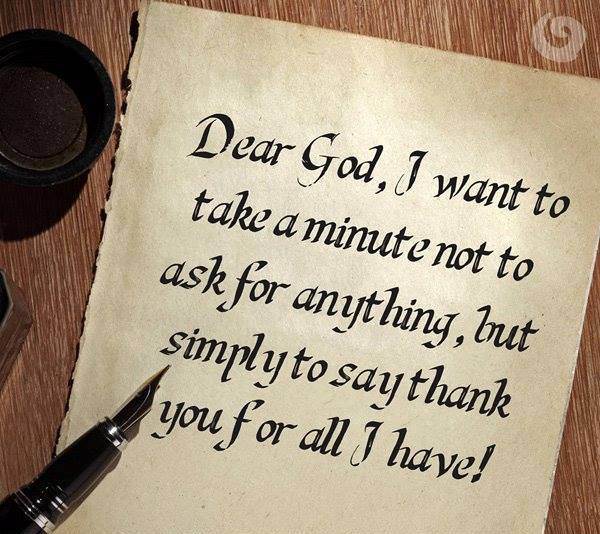 Dear God, I want to
take a minute not to
ask for anything, but
simply to say thank
you for all I have!